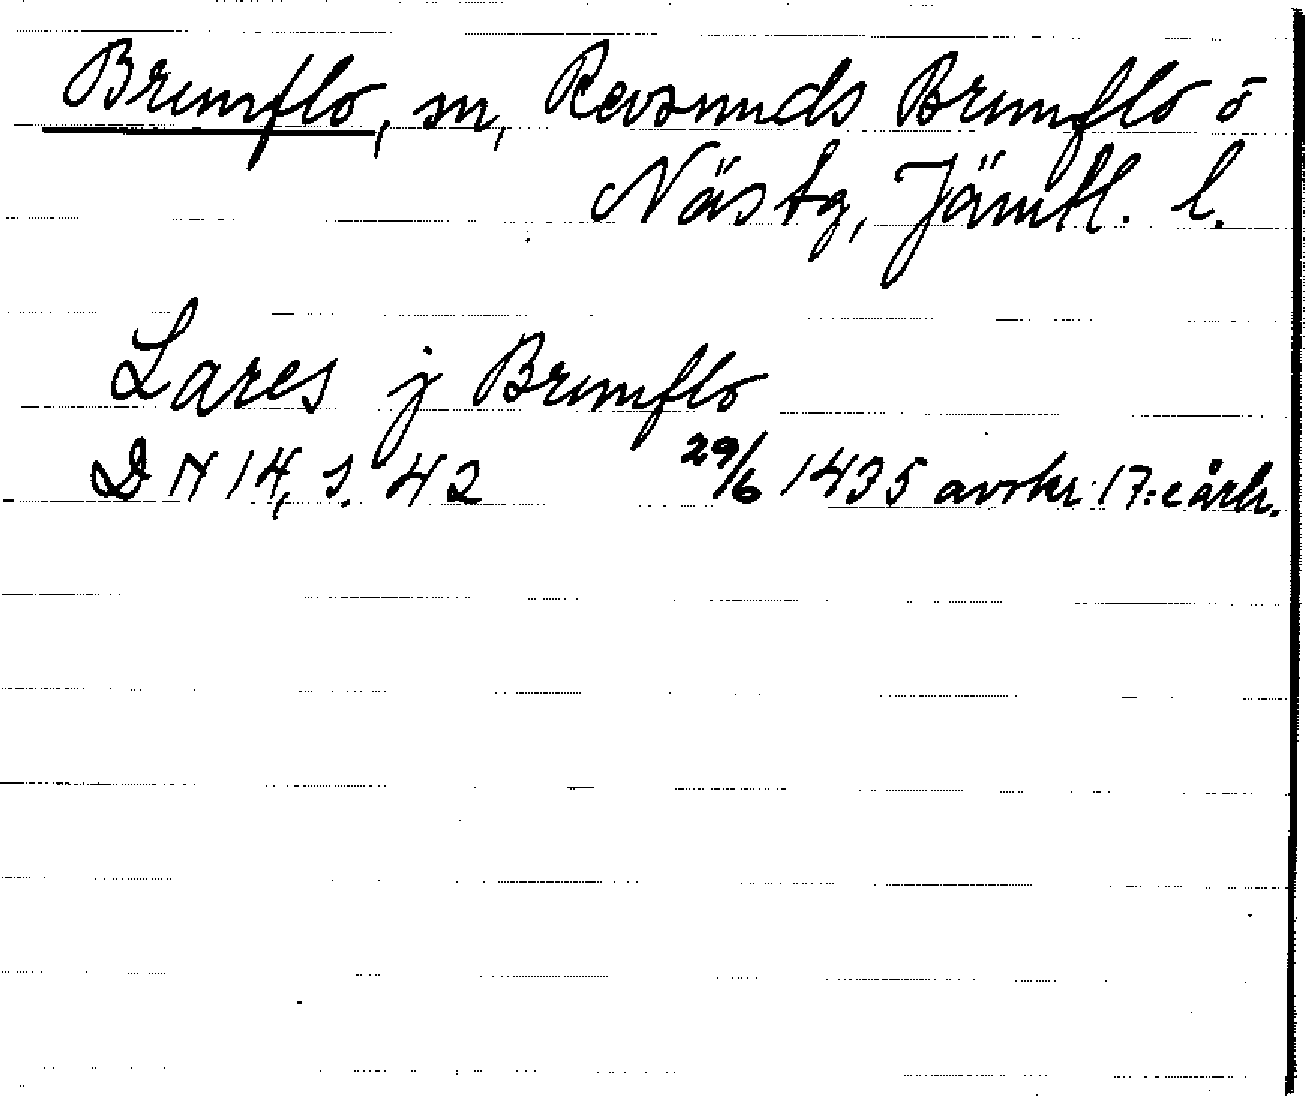 Brunflo, sn, Revsunds Brunflo o
Näs tg, Jämtl. l.
Lares j Brunflo
DN 14, s. 42 29/6 1435 avskr. 17:e årh.